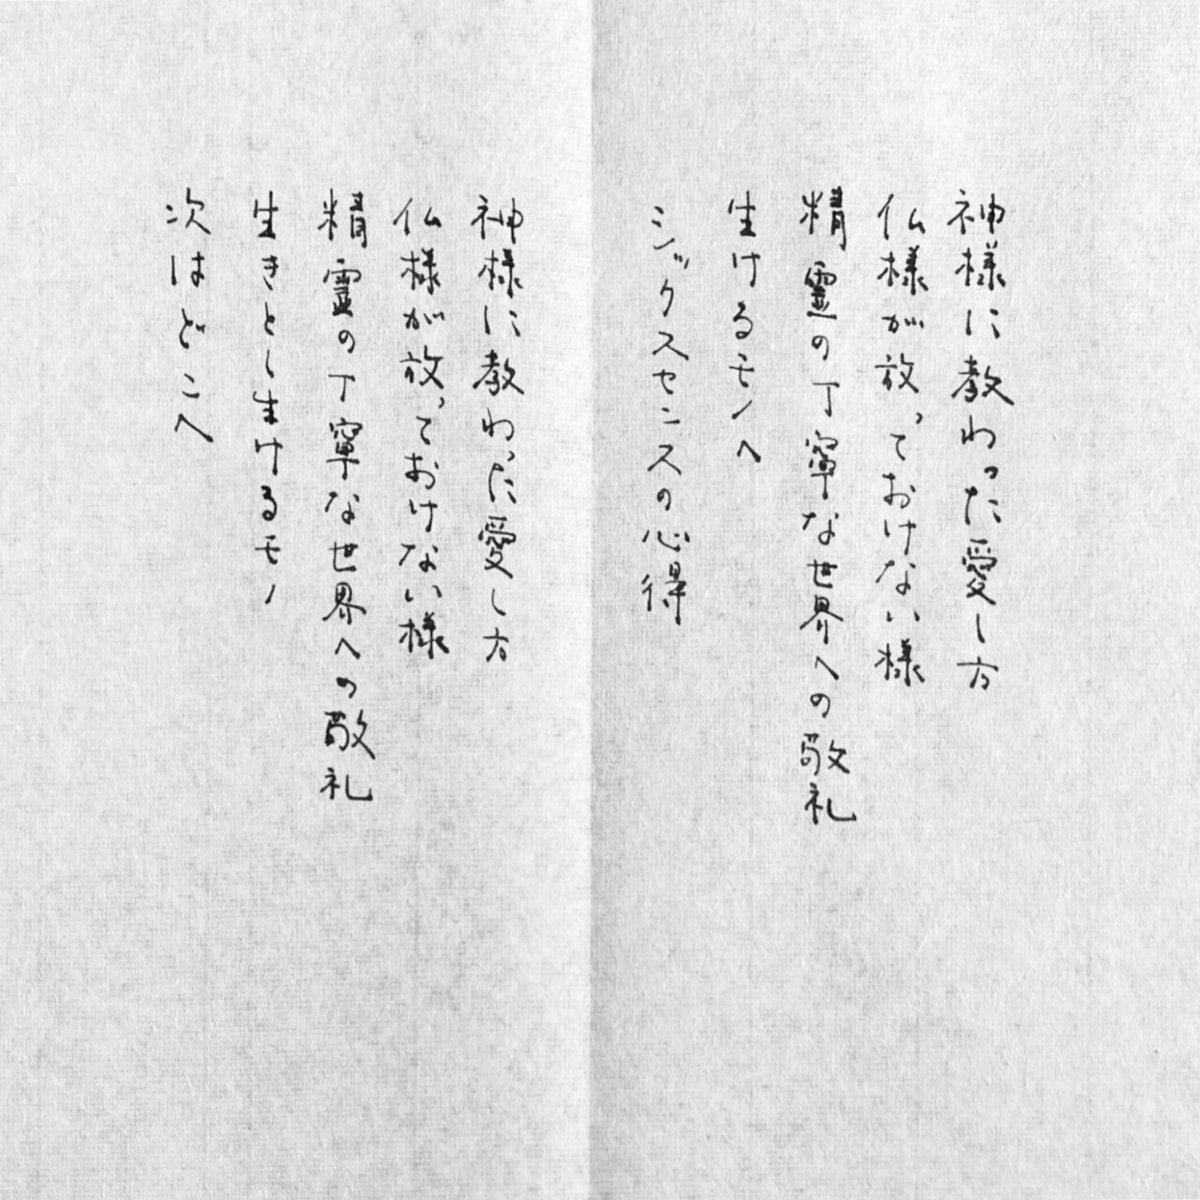 神様に教わった愛し方
仏様が放っておけない様
精霊の丁寧な世界への敬礼
生けるモノへ
シックスセンスの心得
神様に教わった愛し方
仏様が放っておけない様
精霊の丁寧な世界への敬礼
生きとし生けるモノ
次はどこへ